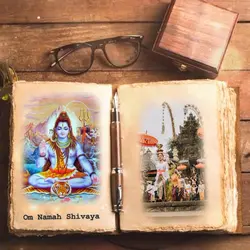 Om Namah Shivaya